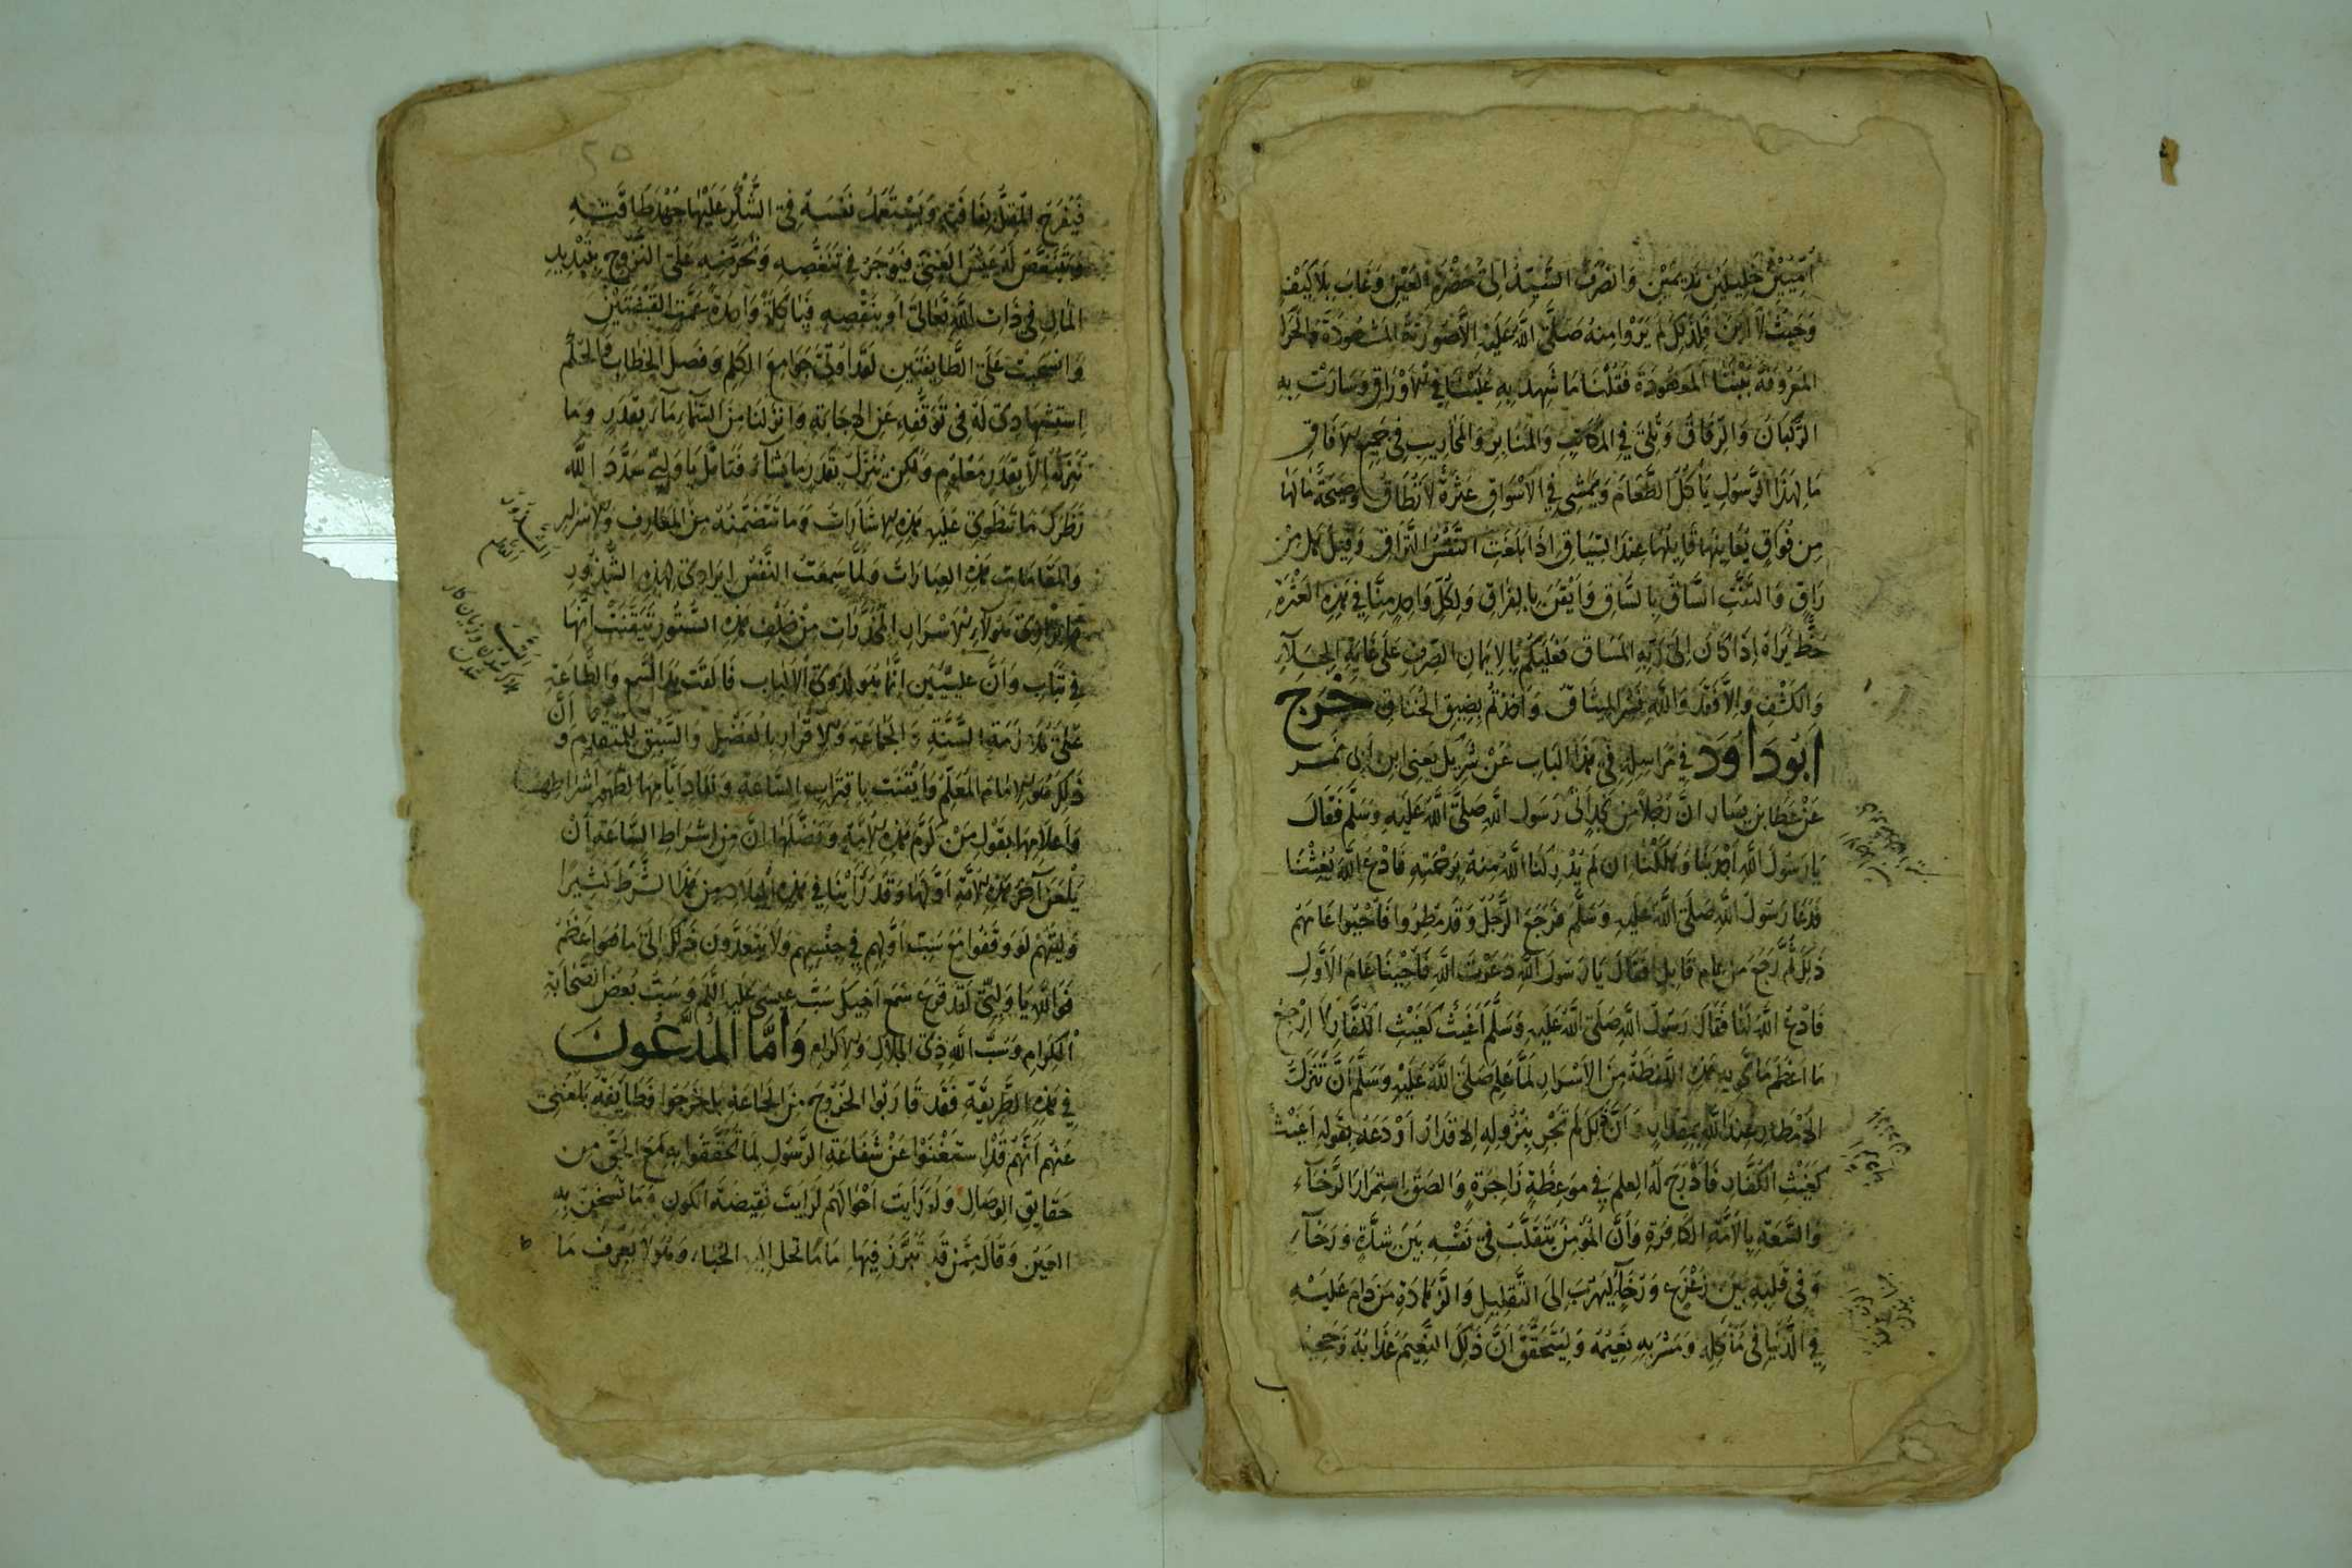 اَمِينَيْنِ خَلِيلَيْنِ نَدِيمَيْنِ وَانصَرَفَ السَّيِّدُ اِلَى حَضْرَةِ العَيْنِ وَغَابَ بِلَا كَيْفٍ
وَحَيْثُ لَا اَيْنَ فَلِذَلِكَ لَمْ يَرَوْا مِنهُ صَلَّى اللَّهُ عَلَيْهِ اِلَّا صُورَتَهُ المَشهُودَةَ
المَعرُوفَةَ بَيْنَنَا المَعهُودَةَ فَقُلْنَا مَا شُهِدَ بِهِ عَلَيْنَا فِي الاَوْرَاقِ وَسَارَتْ بِهِ
الرُّكبَانُ وَالرِّفَاقُ وَتُلِيَ فِي المَكَاتِبِ وَالمَنَابِرِ وَالمَحَارِيبِ فِي جَمِيعِ الاٰفَاقِ
مَا لِهَذَا الرَّسُولِ يَاْكُلُ الطَّعَامَ وَيَمْشِي فِي الاَسْوَاقِ عَثْرَةٌ لَا تُطَاقُ وَصَيْحَةٌ مَا لَهَا
مِن فَوَاقٍ يُعَايِنُهَا قَايِلُهَا عِندَ السِّيَاقِ اِذَا بَلَغَتِ النَّفْسُ التَّرَاقِ وَقِيلَ هَل مِنْ
رَاقٍ وَالتَفَّتِ السَّاقُ بِالسَّاقِ وَاَيْقَنَ بِالفِرَاقِ وَلِكُلِّ وَاحِدٍ مِنَّا فِي هَذِهِ العَثْرَةِ
حَظٌّ يَرَاهُ اِذَا كَانَ اِلَى رَبِّهِ المَسَاقُ فَعَلَيْكُمْ بِالاِيمَانِ الصِّرفِ عَلَى غَايَةِ الجَلَاءِ
وَالكَشْفِ وَاِلَّا فَقَد وَاللَّهِ خَسِرَ المِيثَاقُ وَاُخِذْتُمْ بِضِيقِ الخِنَاقِ خَرَّجَ
اَبُو دَاوُدَ فِي مَرَاسِلِهِ فِي هَذَا البَابِ عَنْ شَرِيكٍ يَعنِي ابنَ اَبِي نَمِرٍ
عَنْ عَطَا بنِ يَسَارٍ اَنَّ رَجُلًا مِن نَجْدٍ اَتَى رَسُولَ اللَّهِ صَلَّى اللَّهُ عَلَيْهِ وَسَلَّمَ فَقَالَ
يَا رَسُولَ اللَّهِ اَجْدَبْنَا وَهَلَكْنَا اِن لَمْ يُدْرِكْنَا اللَّهُ مِنهُ بِرَحْمَتِهِ فَادْعُ اللَّهَ يُغِثْنَا
فَدَعَا رَسُولُ اللَّهِ صَلَّى اللَّهُ عَلَيْهِ وَسَلَّمَ فَرَجَعَ الرَّجُلُ وَقَد مُطِرُوا فَاُحْيُوا عَامَهُمْ
ذَلِكَ ثُمَّ رَجَعَ مِنْ عَامٍ قَابِلٍ فَقَالَ يَا رَسُولَ اللَّهِ دَعَوْتَ اللَّهَ فَاُحْيِينَا عَامَ الاَوَّلِ
فَادْعُ اللَّهَ لَنَا فَقَالَ رَسُولُ اللَّهِ صَلَّى اللَّهُ عَلَيْهِ وَسَلَّمَ اَغَيْثٌ كَغَيْثِ الكُفَّارِ لَا ارْجِعْ
مَا اَعْظَمَ مَا هِيَ بِهِ هَذِهِ اللَّفظَةُ مِنَ الاَسْرَارِ لَمَّا عَلِمَ صَلَّى اللَّهُ عَلَيْهِ وَسَلَّمَ اَنَّ تَنَزُّلَ
الاَمْطَارِ عِندَ اللَّهِ بِمِقْدَارٍ وَاَنَّ ذَلِكَ لَمْ تَجْرِ بِنُزُولِهِ الاَقْدَارُ اَوْدَعَهُ بِقَولِهِ اَغَيْثٌ
كَغَيْثِ الكُفَّارِ فَاَدْرَجَ لَهُ العِلمَ فِي مَوعِظَةٍ زَاجِرَةٍ وَاَلصَقَ اِستِمْرَارَ الرَّخَاءِ
وَالسَّعَةِ بِالاُمَّةِ الكَافِرَةِ وَاَنَّ المُوْمِنَ يَتَقَلَّبُ فِي نَفْسِهِ بَيْنَ شِدَّةٍ وَرَخَاءٍ
وَفِي قَلبِهِ بَيْنَ زَعْزَعٍ وَرُخَاءٍ لِيَهْرُبَ اِلَى التَّقلِيلِ وَالزَّهَادَةِ مَن دَامَ عَلَيْهِ
فِي الدُّنيَا فِي مَاكَلِهِ وَمَشْرَبِهِ نَعِيمُهُ وَلِيَتَحَقَّقَ اَنَّ ذَلِكَ النَّعِيمَ عَذَابُهُ وَجَحِيمُهُ
٢٥
فَيَفْرَحَ المُقِلُّ بِفَاقَتِهِ وَيَسْتَعْمِلُ نَفْسَهُ فِي الشُّكْرِ عَلَيْهَا جَهْدَ طَاقَتِهِ
وَيَتَنَغَّصَ لَهُ عَيْشُ الغَنِيِّ فَيُوجَرُ فِي تَنَغُّصِهِ وَتُحَرِّضُهِ عَلَى الخُرُوجِ بِتَبْدِيدِ
المَالِ فِي ذَاتِ اللَّهِ تَعَالَى اَو بِنَقْصِهِ فَيَا كَلِمَةً وَاحِدَةً عَمَّتِ القَبْضَتَيْنِ
وَانسَحَبَتْ عَلَى الطَّايِفَتَيْنِ لَقَد اُوتِيَ جَوَامِعَ الكَلِمِ وَفَصلَ الخِطَابِ
اِستِشْهَادِي لَهُ فِي تَوَقُّفِهِ عَنِ الاِجَابَةِ وَاَنزَلنَا مِنَ السَّمَاءِ مَاءً بِقَدَرٍ وَمَا
نُنَزِّلُهُ اِلَّا بِقَدَرٍ مَعْلُومٍ وَلَكِن يُنَزِّلُ بِقَدَرٍ مَا يَشَاءُ فَتَامَّلْ يَا وَلِيِّي سَدَّدَ اللَّهُ
نَظَرَكَ مَا تَنطَوِي عَلَيهِ هَذِهِ الاِشَارَاتُ وَمَا تَتَضَمَّنُهُ مِنَ المَعَارِفِ وَالاَسْرَارِ
وَالمَقَامَاتِ هَذِهِ العِبَارَاتُ وَلَمَّا سَمِعَتِ النَّفْسُ اِيرَادِي لِهَذِهِ الشُّذُورِ
وَاِبْرَازِي هَوُلَاءِ الاَسْرَارِ المُخَدَّرَاتِ مِنْ خَلْفِ هَذِهِ السُّتُورِ تَيَقَّنَتْ اَنَّهَا
فِي تَبَابٍ وَاَنَّ عِلِّيِّينَ اِنَّمَا هُوَ لِذَوِي الاَلبَابِ فَاَلقَتْ يَدَ السَّمعِ وَالطَّاعَةِ
عَلَى مُلَازَمَةِ السُّنَّةِ وَالجَمَاعَةِ وَالاِقْرَارِ بِالفَضْلِ وَالسَّبْقِ لِلمُتَقَدِّمِ وَاَنَّ
ذَلِكَ هُوَ الاِمَامُ المُعَلَّمُ وَاَيْقَنَتْ بِاقتِرَابِ السَّاعَةِ وَنَفَادِ اَيَّامِهَا لِظُهُورِ اَشْرَاطِهَا
وَاَعلَامِهَا بِقَولِ مَنْ كَرَّمَ هَذِهِ الاُمَّةَ وَفَضَّلَهَا اِنَّ مِن اَشْرَاطِ السَّاعَةِ اَنْ
يَلْعَنَ اٰخِرُ هَذِهِ الاُمَّةِ اَوَّلَهَا وَقَدْ رَاَيْنَا فِي هَذِهِ البِلَادِ مِن هَذَا الشَّرطِ كَثِيرًا
وَلَيْتَهُمْ لَو وَقَفُوا مَعَ سَبِّ اَوَّلِهِم فِي جِنْسِهِم وَلَا يَتَعَدَّونَ ذَلِكَ اِلَى مَا هُوَ اَعْظَمُ
فَوَاللَّهِ يَا وَلِيِّي لَقَد قَرَعَ سَمْعَ اَخِيكَ سَبُّ عِيسَى عَلَيهِ السَّلَم وَسَبُّ بَعْضِ الصَّحَابَةِ
الكِرَامِ وَسَبُّ اللَّهِ ذِي الجَلَالِ وَالاِكرَامِ وَاَمَّا المُدَّعُونَ
فِي هَذِهِ الطَّرِيقَةِ فَقَد قَارَبُوا الخُرُوجَ مِنَ الجَمَاعَةِ بَل خَرَجُوا فَطَايِفَةٌ بَلَغَنِي
عَنهُم اَنَّهُمْ قَدِ استَغْنَوْا عَنْ شَفَاعَةِ الرَّسُولِ لِمَا تَحَقَّقُوا بِهِ مَعَ الحَقِّ مِن
حَقَايِقِ الوِصَالِ وَلَو رَاَيتَ اَحْوَالَهُم لَرَاَيتَ نَقِيضَةَ الكَونِ وَمَا تَسْخَنُ بِهِ
العَينُ وَقَالَ مَنْ قَد تَبَرَّزَ فِيهَا اِمَامًا تُحَلُّ اِلَيهِ الحُبَاءُ وَهُوَ لَا يَعرِفُ مَا